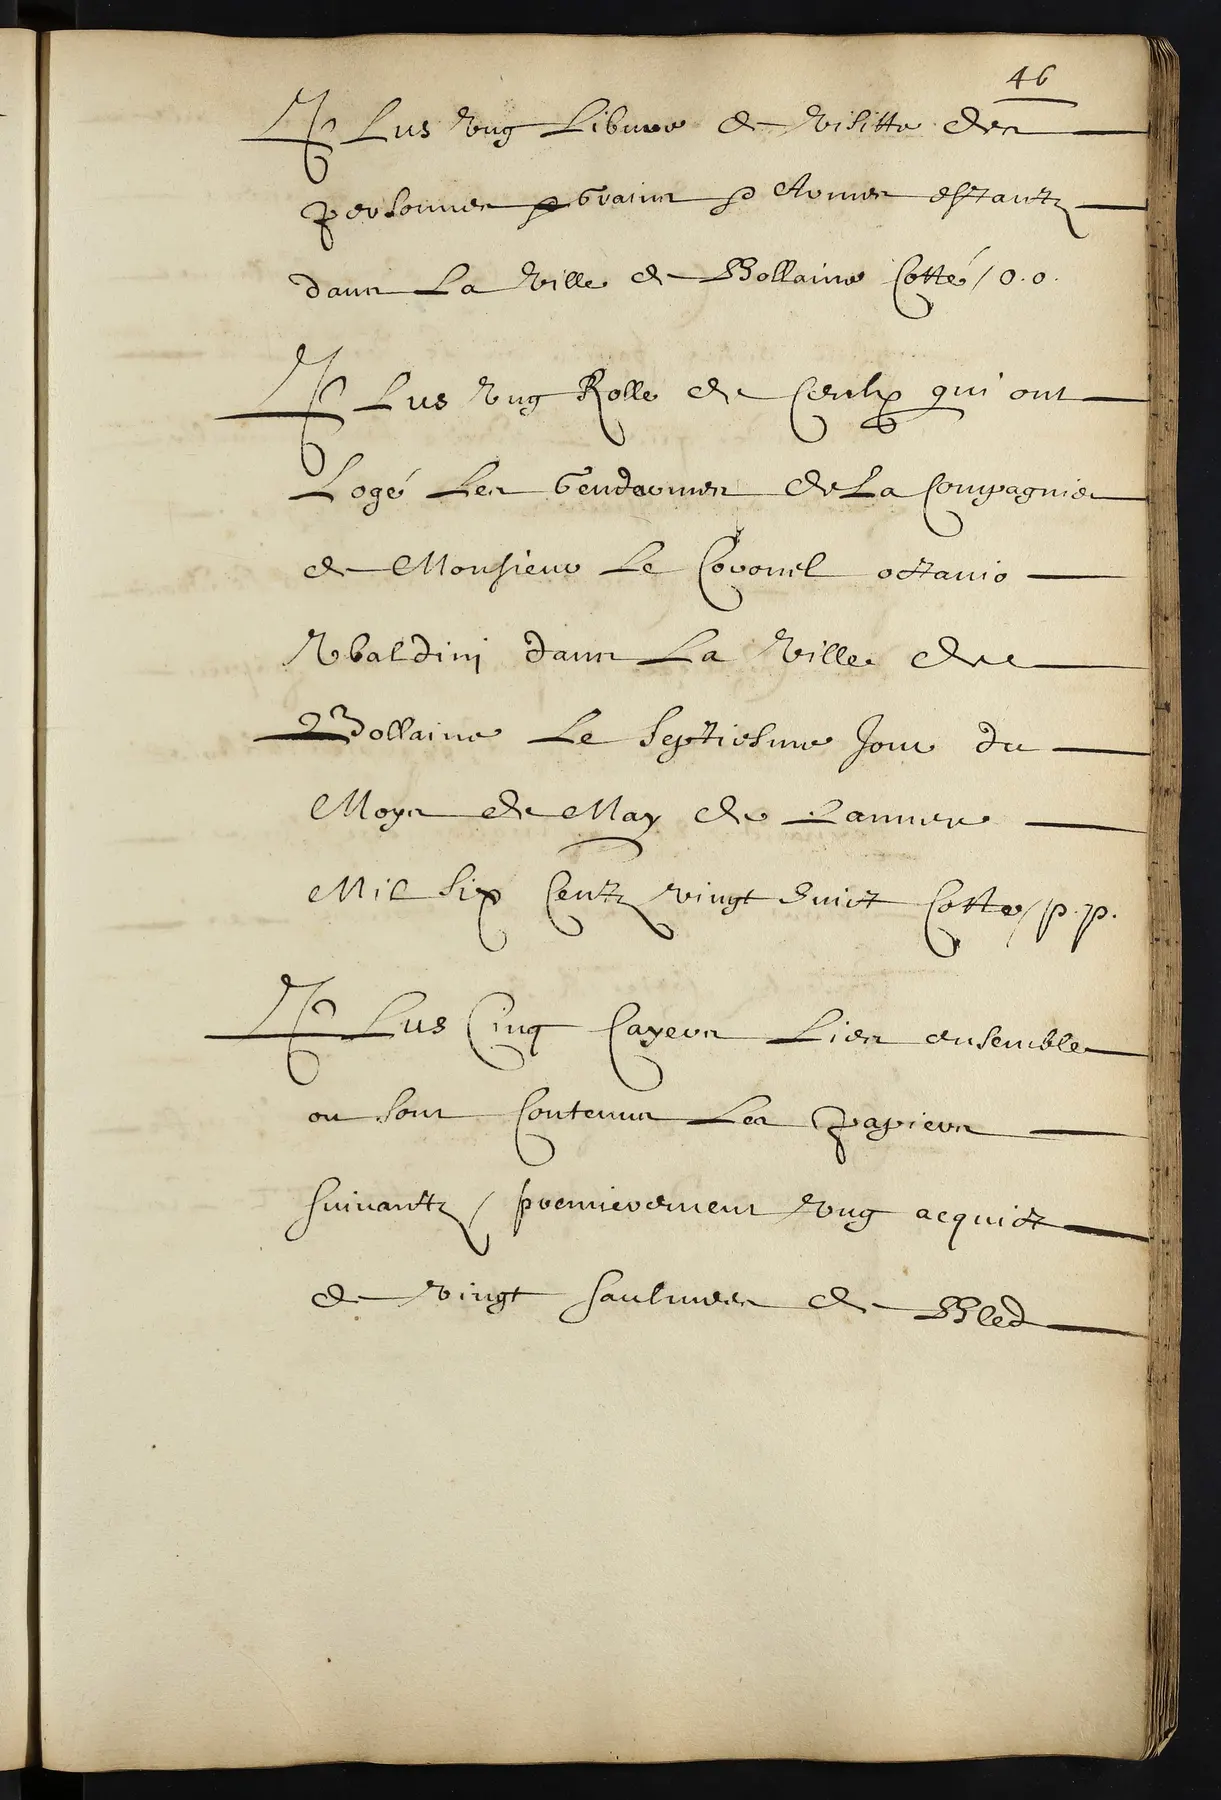 46
Plus Vng Libure de Visitte des
personnes Grains & Armes estantz
dans La Ville de Bollaine Cotté / o.o.
Plus Vng Rolle de Ceulx qui ont
Logé Les Gendarmes de La Compagnie
de Monsieur Le Coronel octauio
Vbaldinj dans La Ville de
Bollaine Le Septiesme Jour du
Moys de May de Lannee
Mil Six Centz vingt huict Cotte / p.p.
Plus Cinq Cayers Lies ensemble
ou sont Contenus Les papiers
suiuantz / premierement Vng acquict
de vingt saulmees de Bled